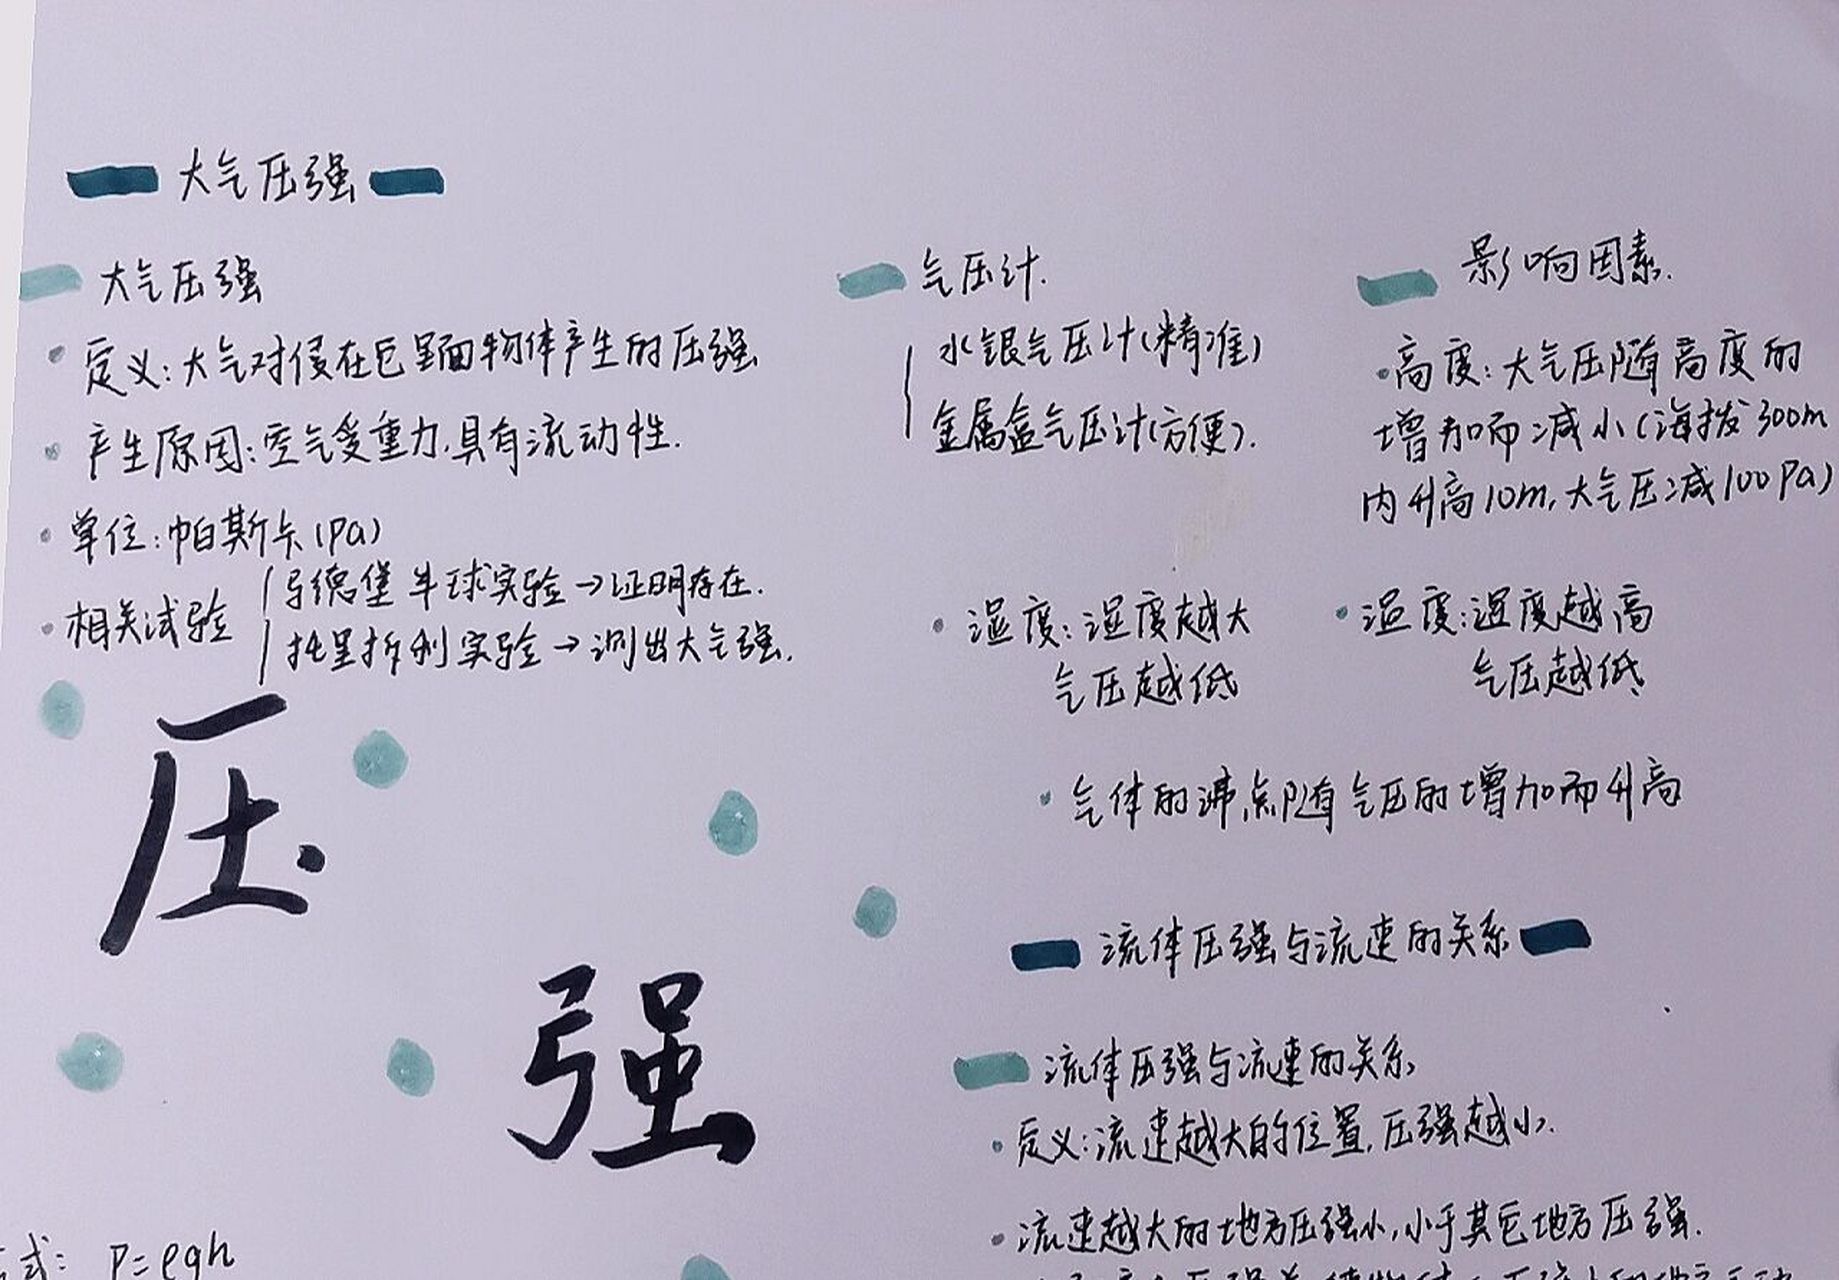 大气压强
大气压强
定义:大气对侵在它里面物体产生的压强
产生原因:空气受重力,具有流动性.
单位:帕斯卡(Pa)
相关试验
马德堡半球实验→证明存在.
托里拆利实验→测出大气强.
气压计.
水银气压计(精准)
金属盒气压计(方便).
影响因素.
高度:大气压随高度的
增加而减小(海拨300m
内升高10m,大气压减100Pa)
湿度:湿度越大
气压越低
温度:温度越高
气压越低
气体的沸点随气压的增加而升高
压
强
流体压强与流速的关系
流体压强与流速的关系
定义:流速越大的位置,压强越小.
流速越大的地方压强小,小于其它地方压强.
式: P=ρgh